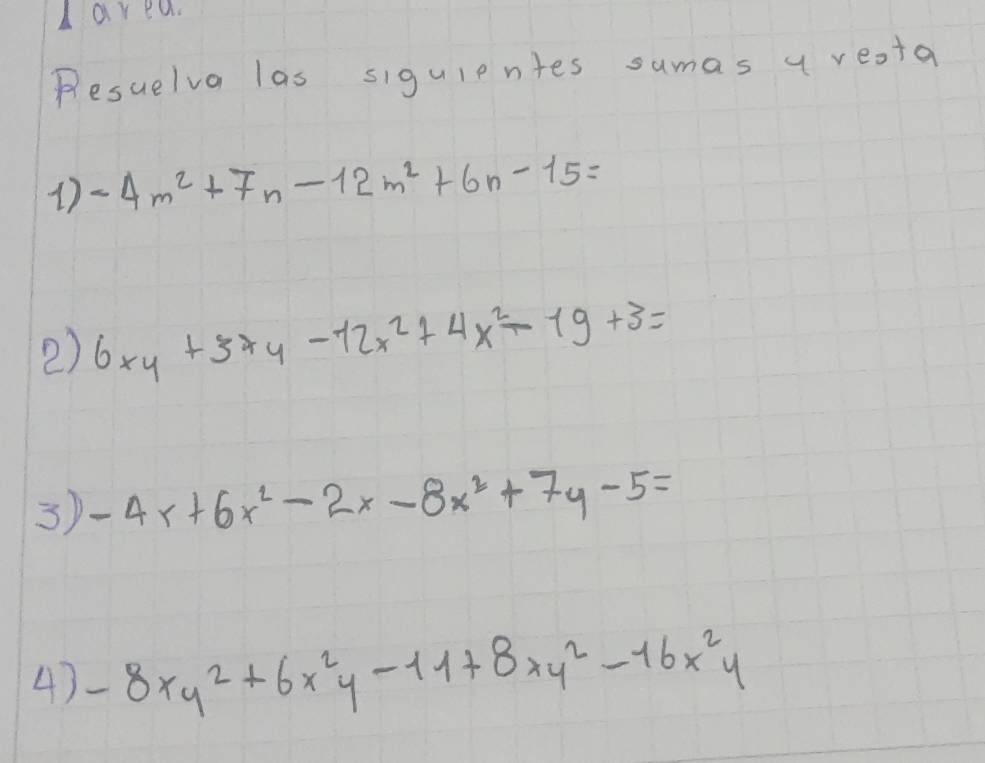 Tarea.
Resuelva las siguientes sumas y resta
1) -4m² + 7n - 12m² + 6n - 15 =
2) 6xy + 3xy - 12x² + 4x² - 19 + 3 =
3) -4x + 6x² - 2x - 8x² + 7y - 5 =
4) -8xy² + 6x²y - 11 + 8xy² - 16x²y